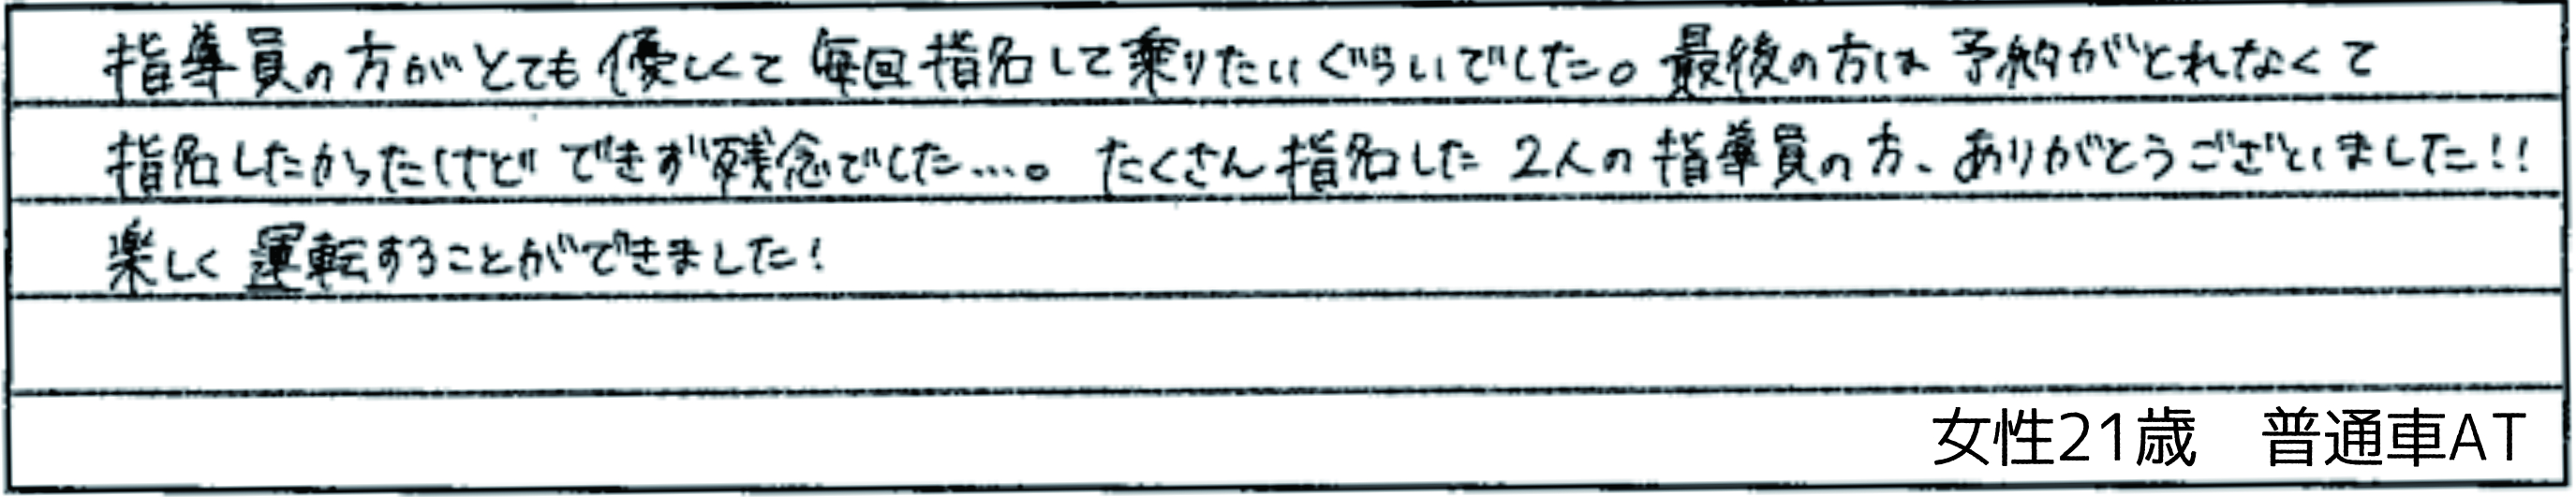 指導員の方がとても優しくて毎回指名して乗りたいぐらいでした。最後の方は予約がとれなくて
指名したかったけどできず残念でした…。たくさん指名した2人の指導員の方、ありがとうございました!!
楽しく運転することができました!
女性21歳　普通車AT